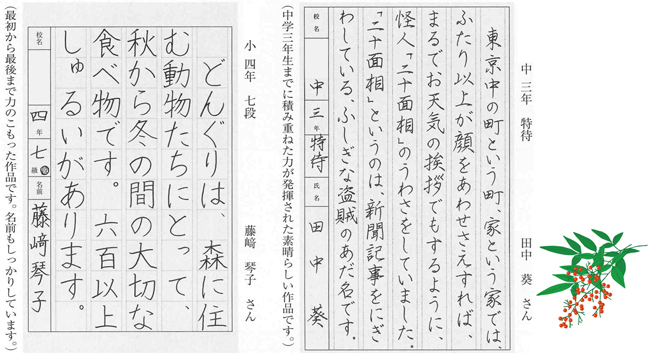 中 三年 特待
田中 葵 さん
東京中の町という町、家という家では、
ふたり以上が顔をあわせさえすれば、
まるでお天気の挨拶でもするように、
怪人「二十面相」のうわさをしていました。
「二十面相」というのは、新聞記事をにぎ
わしている、ふしぎな盗賊のあだ名です。
校名 中 三 年 特待 氏名 田中 葵
(中学三年生までに積み重ねた力が発揮された素晴らしい作品です。)
小 四年 七段
藤﨑 琴子 さん
どんぐりは、森に住
む動物たちにとって、
秋から冬の間の大切な
食べ物です。六百以上
しゅるいがあります。
校名 四 年 七 級 段 名前 藤﨑琴子
(最初から最後まで力のこもった作品です。名前もしっかりしています。)